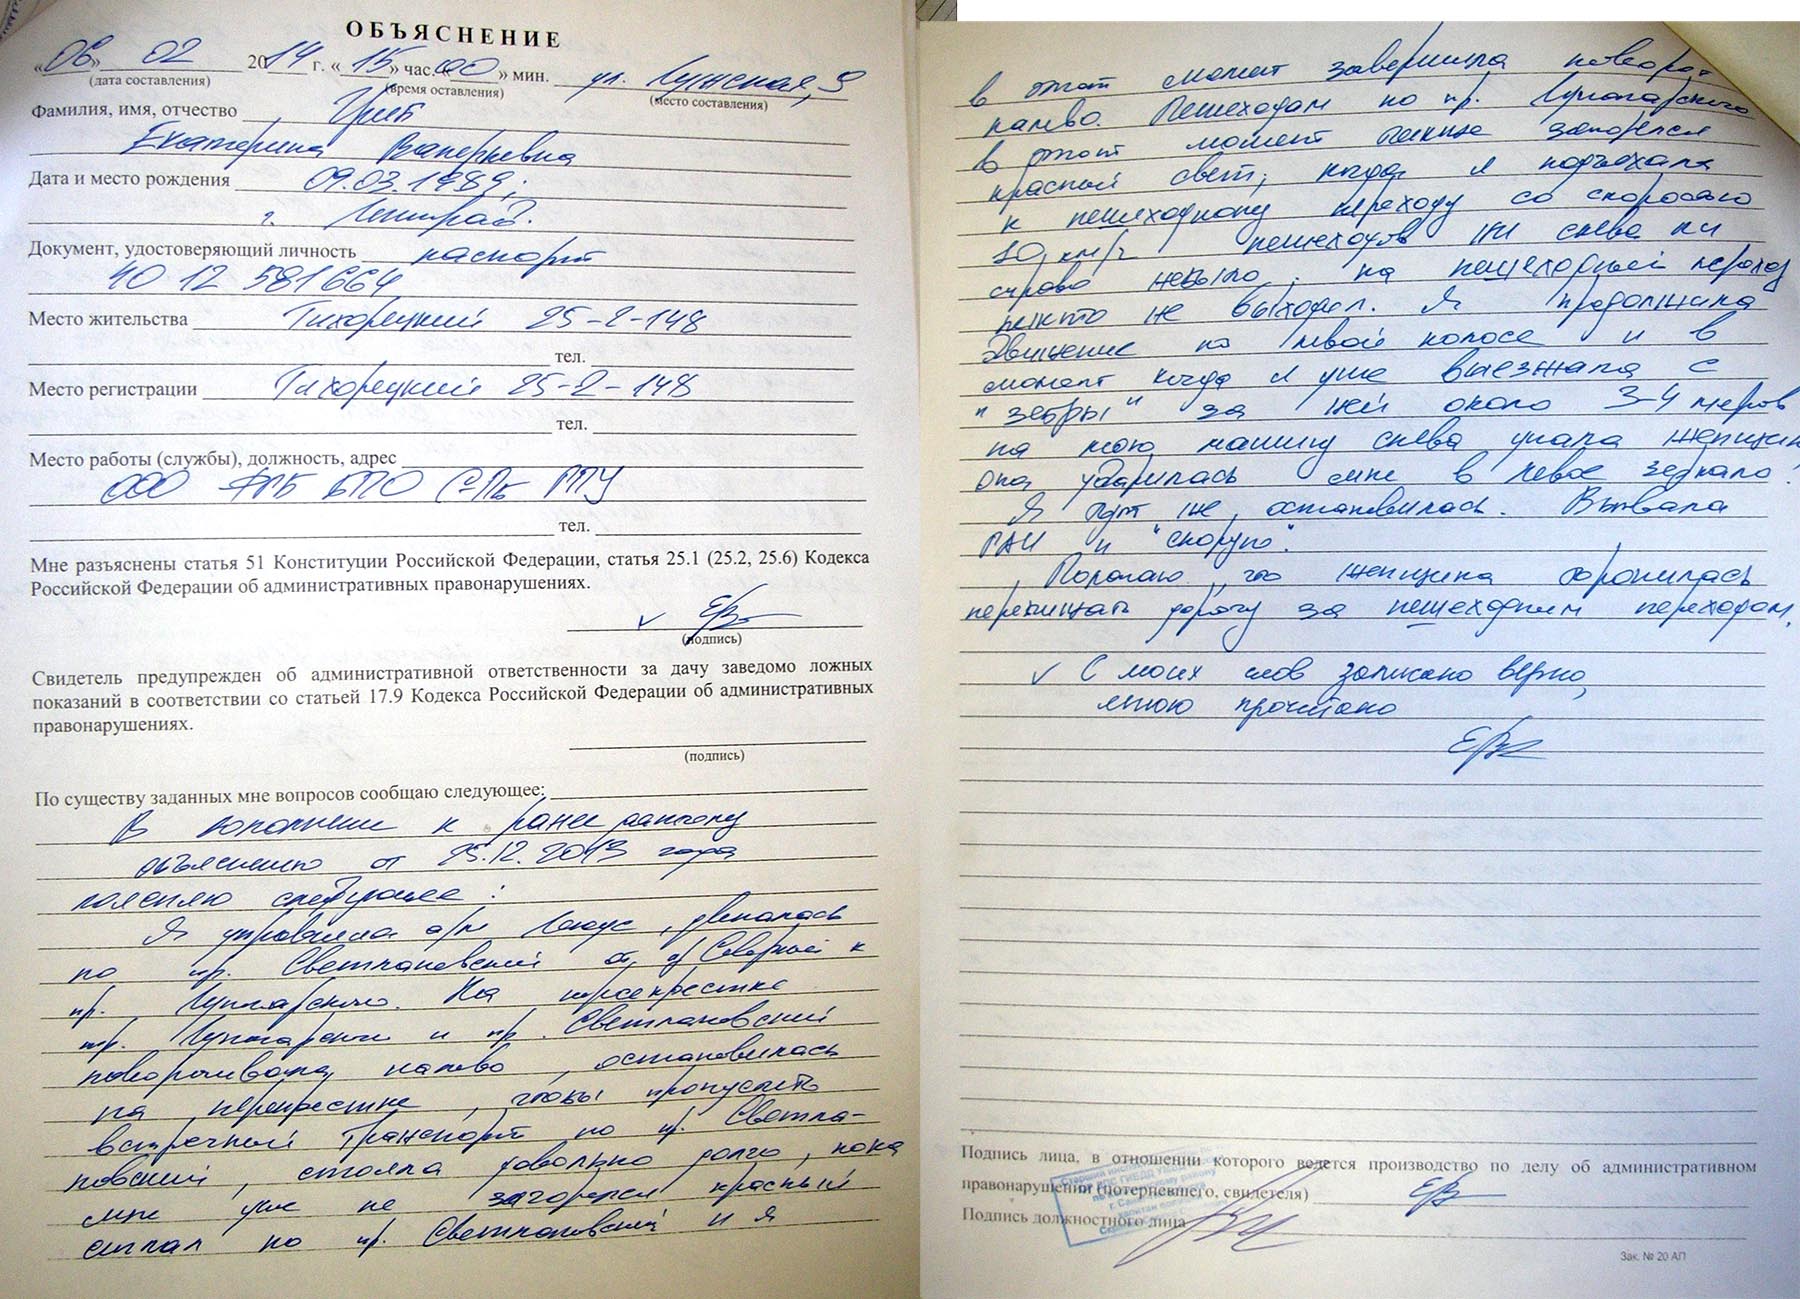 ОБЪЯСНЕНИЕ
«06» 02 2014 г. «15» час. «00» мин. ул. Лужская, 9
(дата составления) (время оставления) (место составления)
Фамилия, имя, отчество Гриб
Екатерина Валерьевна
Дата и место рождения 09.03.1989;
г. Ленинград.
Документ, удостоверяющий личность паспорт
40 12 581664
Место жительства Тихорецкий 25-2-148
тел.
Место регистрации Тихорецкий 25-2-148
тел.
Место работы (службы), должность, адрес
ООО СПб
тел.
Мне разъяснены статья 51 Конституции Российской Федерации, статья 25.1 (25.2, 25.6) Кодекса
Российской Федерации об административных правонарушениях.
(подпись)
Свидетель предупрежден об административной ответственности за дачу заведомо ложных
показаний в соответствии со статьей 17.9 Кодекса Российской Федерации об административных
правонарушениях.
(подпись)
По существу заданных мне вопросов сообщаю следующее:
В дополнение к ранее данному
объяснению от 25.12.2013 года
поясняю следующее:
Я управляла а/м Лексус, двигалась
по пр. Светлановский от Северный к
пр. Луначарского. На перекрестке
пр. Луначарский и пр. Светлановский
поворачивала налево, остановилась
на перекрестке, чтобы пропустить
встречный транспорт по пр. Светла-
новский, стояла довольно долго, пока
мне уже не загорелся красный
сигнал по пр. Светлановский и я
в этот момент завершила поворот
налево. Пешеходам по пр. Луначарского
в этот момент также загорелся
красный свет, когда я подъехала
к пешеходному переходу со скоростью
10 км/ч пешеходов ни слева ни
справа небыло, на пешеходный переход
никто не выходил. Я продолжила
движение по левой полосе и в
момент когда я уже выезжала с
"зебры" за ней около 3-4 метров
на мою машину слева упала женщина
она ударилась мне в левое зеркало.
Я тут же остановилась. Вызвала
ГАИ и "скорую".
Полагаю, что женщина торопилась
перебежать дорогу за пешеходным переходом.
С моих слов записано верно,
мною прочитано
Подпись лица, в отношении которого ведется производство по делу об административном
правонарушении (потерпевшего, свидетеля)
Подпись должностного лица
Зак. № 20 АП